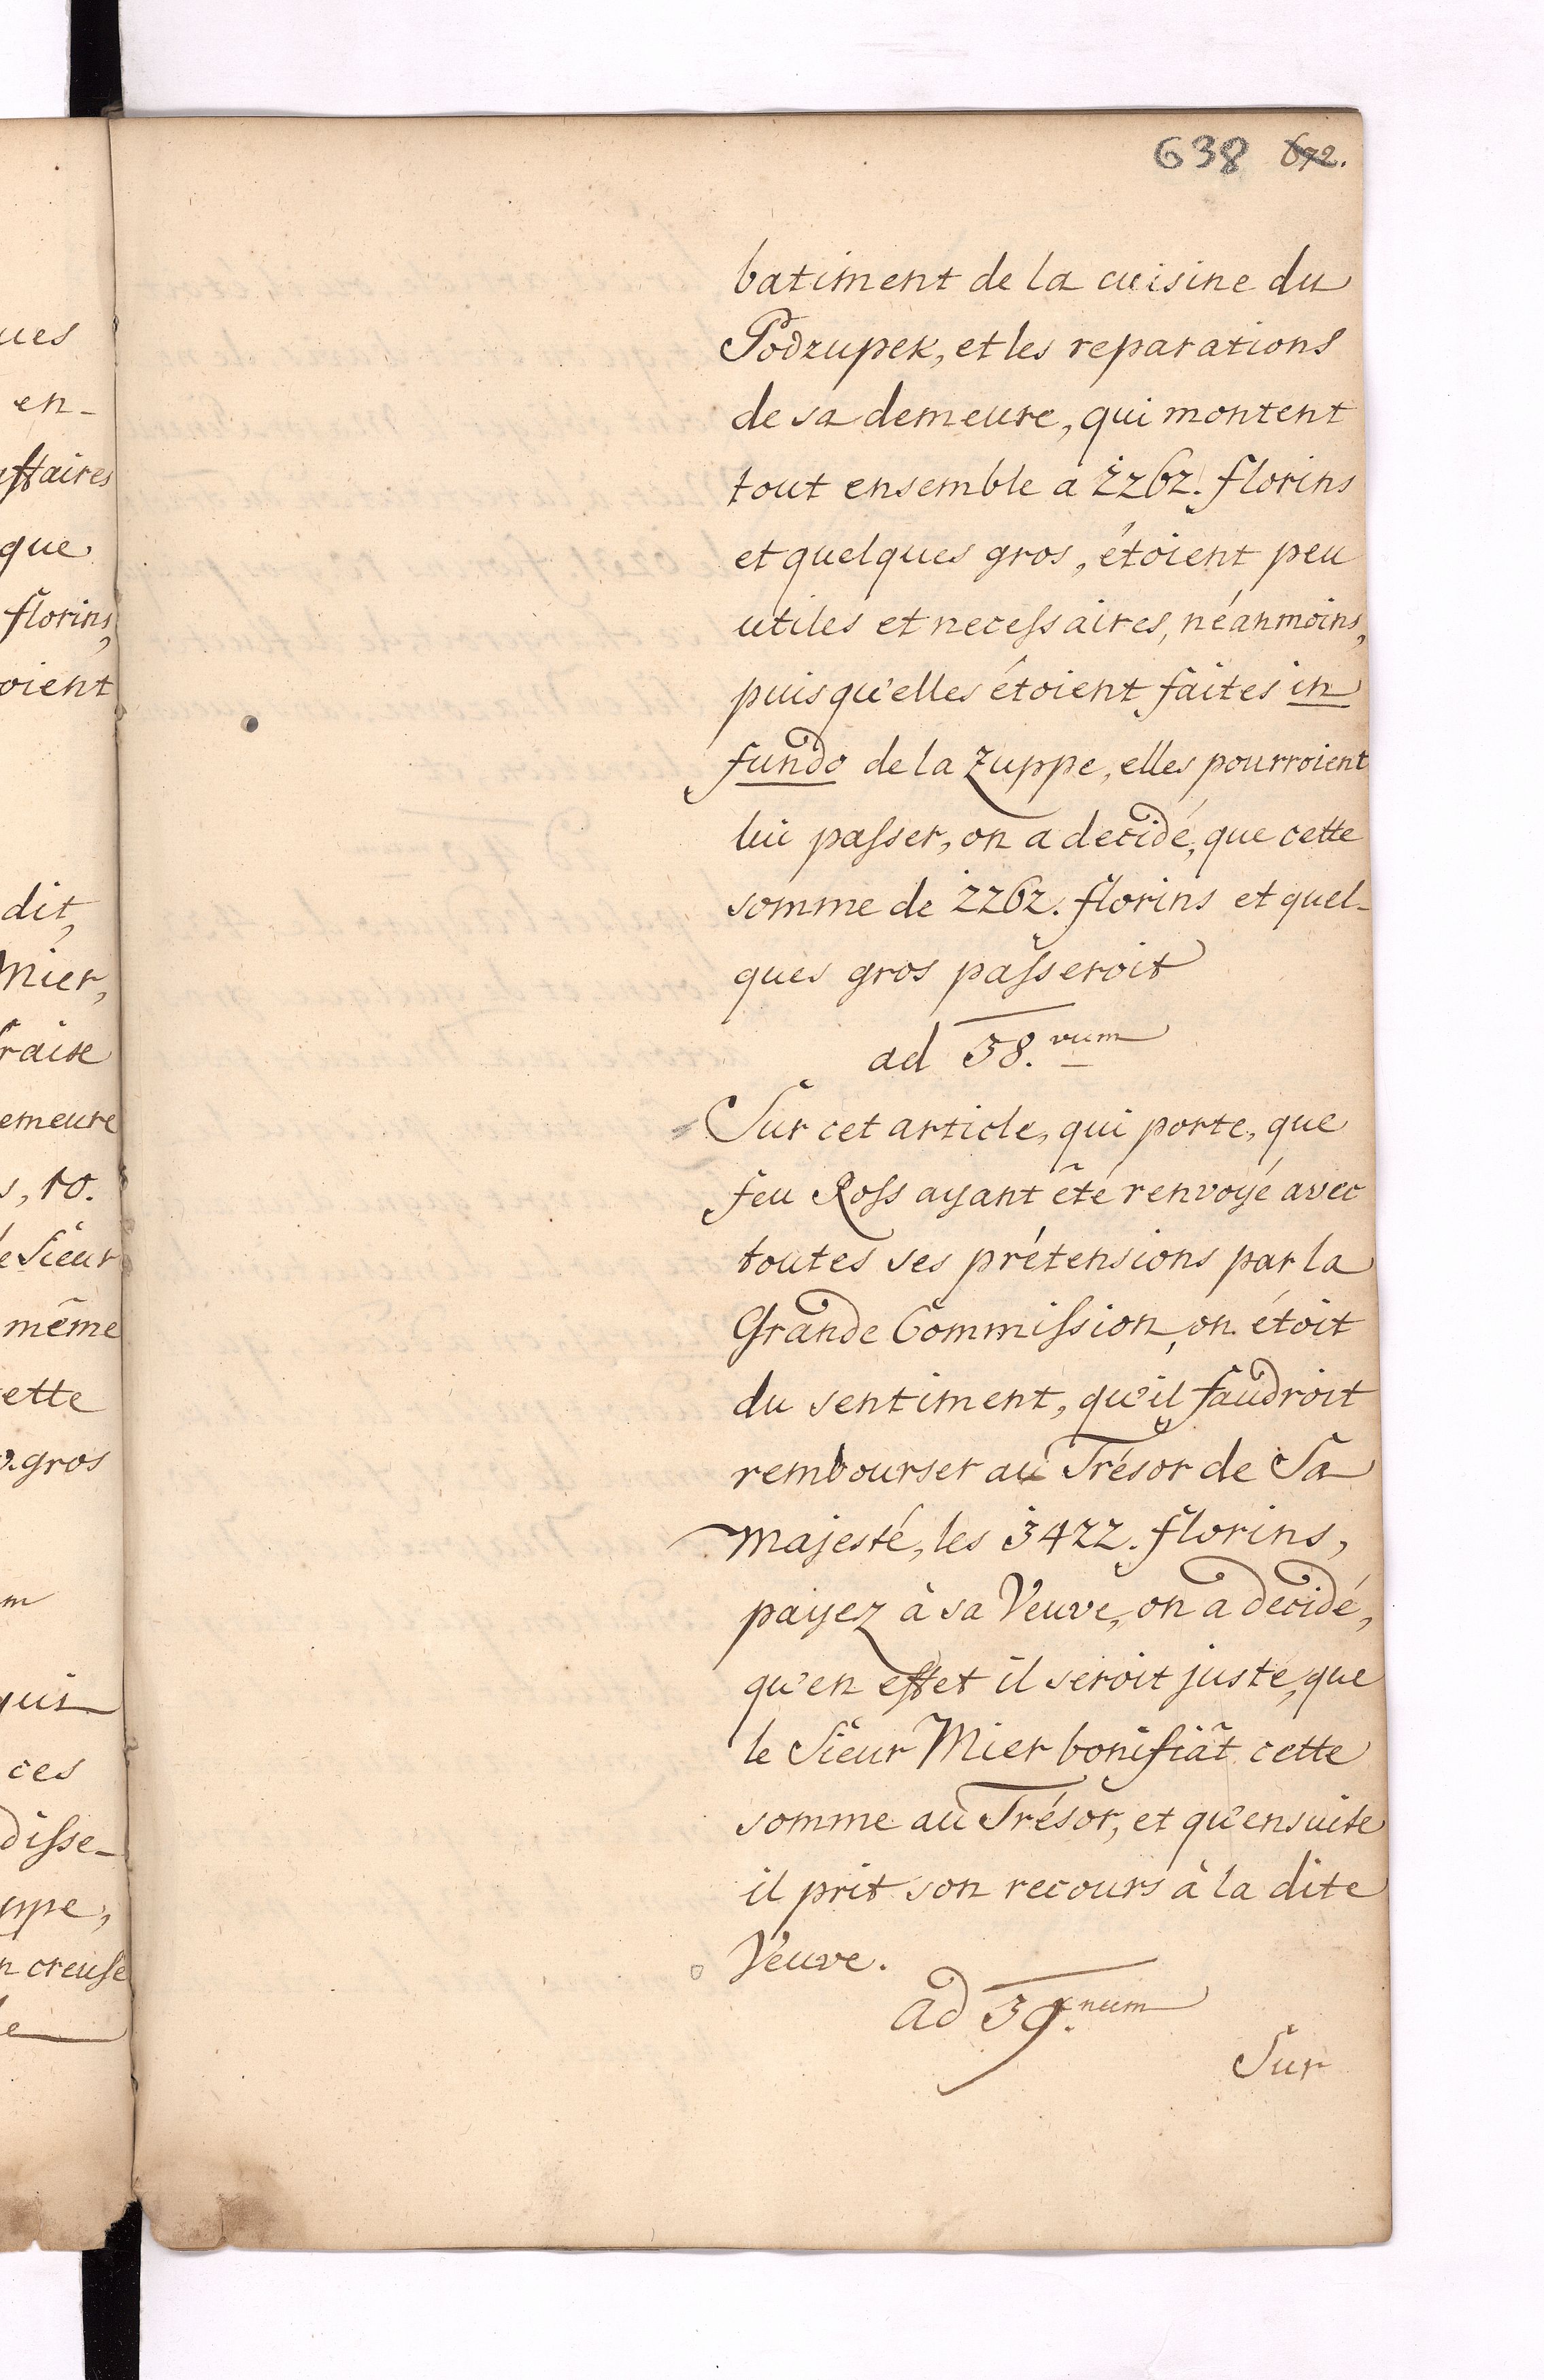 638 672.
batiment de la cuisine du
Podzupek, et les reparations
de sa demeure, qui montent
tout ensemble a 2262. florins
et quelques gros, étoient peu
utiles et necessaires, néanmoins,
puis qu'elles étoient faites in
fundo de la Zuppe, elles pourroient
lui passer, on a decidé, que cette
somme de 2262. florins et quel-
ques gros passeroit
ad 38.vum
Sur cet article, qui porte, que
feu Ross ayant êté renvoyé avec
toutes ses prétensions par la
Grande Commission, on étoit
du sentiment, qu'il faudroit
rembourser au Trésor de Sa
Majesté, les 3422. florins,
payez à sa Veuve, on a decidé,
qu'en effet il seroit juste, que
le Sieur Mier bonifiât cette
somme au Trésor, et qu'ensuite
il prit son recours à la dite
Veuve.
ad 39.num
Sur
ues
en-
affaires
que
florins,
oient
dit,
Mier,
emeure
s, 10.
e Sieur
même
ette
gros
m
qui
ces
disse-
ppe,
n creuse
e